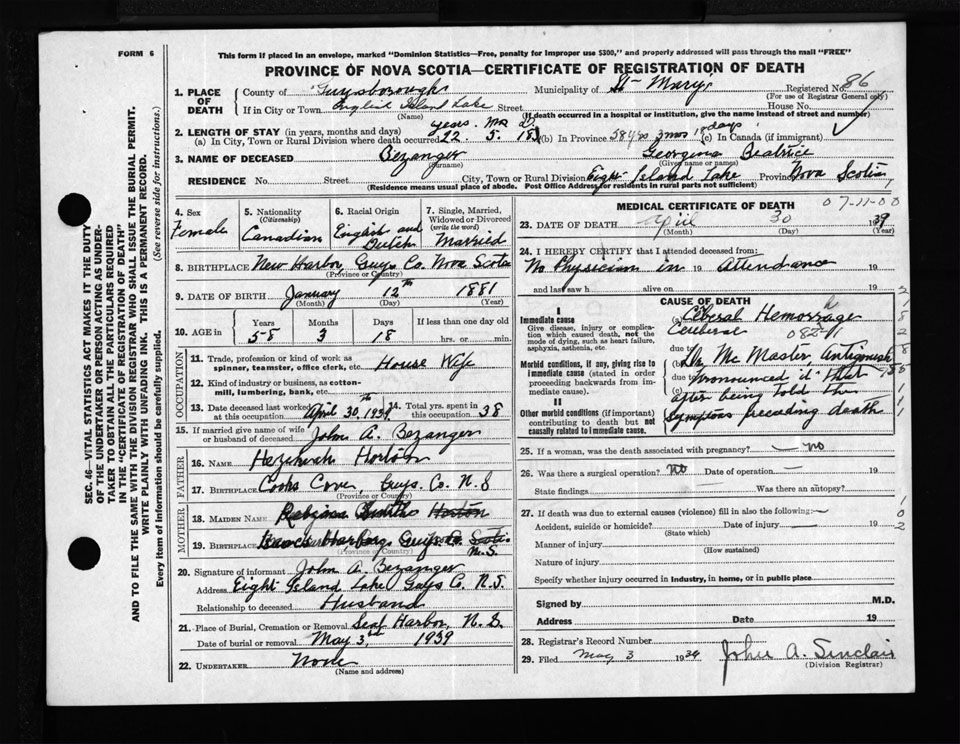 FORM 6
This form if placed in an envelope, marked "Dominion Statistics—Free, penalty for improper use $300," and properly addressed will pass through the mail "FREE"
PROVINCE OF NOVA SCOTIA—CERTIFICATE OF REGISTRATION OF DEATH
1. PLACE OF DEATH
County of Guysborough Municipality of St Mary's Registered No. 86
(For use of Registrar General only)
If in City or Town English Island Lake Street House No.
(Name) (If death occurred in a hospital or institution, give the name instead of street and number)
2. LENGTH OF STAY (in years, months and days) years. mo d
(a) In City, Town or Rural Division where death occurred 22. 5. 18 (b) In Province 58 yrs 3 mos 18 days (c) In Canada (if immigrant)
3. NAME OF DECEASED Bezanger Georgina Beatrice
(Surname) (Given name or names)
RESIDENCE No. Street City, Town or Rural Division Eight Island Lake Province Nova Scotia
(Residence means usual place of abode. Post Office Address for residents in rural parts not sufficient)
4. Sex Female
5. Nationality (Citizenship) Canadian
6. Racial Origin English and Dutch
7. Single, Married, Widowed or Divorced (write the word) Married
8. BIRTHPLACE New Harbor, Guys Co. Nova Scotia
(Province or Country)
9. DATE OF BIRTH January 12th 1881
(Month) (Day) (Year)
10. AGE in Years Months Days If less than one day old
58 3 18 hrs. or min.
OCCUPATION
11. Trade, profession or kind of work as spinner, teamster, office clerk, etc. House Wife
12. Kind of industry or business, as cotton-mill, lumbering, bank, etc.
13. Date deceased last worked at this occupation April 30th 1939 14. Total yrs. spent in this occupation 38
15. If married give name of wife or husband of deceased John A. Bezanger
FATHER
16. NAME Hezekiah Horton
17. BIRTHPLACE Cooks Cove, Guys. Co. N. S
(Province or Country)
MOTHER
18. MAIDEN NAME Horton
19. BIRTHPLACE Harbor, Guys Co. Scotia N.S.
(Province or Country)
20. Signature of informant John A. Bezanger
Address Eight Island Lake Guys Co. N.S.
Relationship to deceased Husband
21. Place of Burial, Cremation or Removal Seal Harbor, N. S.
Date of burial or removal May 3rd 1939
22. UNDERTAKER None
(Name and address)
MEDICAL CERTIFICATE OF DEATH 07-11-00
23. DATE OF DEATH April 30 1939
(Month) (Day) (Year)
24. I HEREBY CERTIFY that I attended deceased from:
No Physician in 19 Attendance 19
and last saw h alive on 19
CAUSE OF DEATH
I
Immediate cause
Give disease, injury or complication which caused death, not the mode of dying, such as heart failure, asphyxia, asthenia, etc.
(a) Ciberal Hemorrage
Cerebral
Morbid conditions, if any, giving rise to immediate cause (stated in order proceeding backwards from immediate cause).
due to Dr. McMaster Antigonish
due to pronounced it that
after being told the
II
Other morbid conditions (if important) contributing to death but not causally related to immediate cause.
symptoms preceding death
25. If a woman, was the death associated with pregnancy? no
26. Was there a surgical operation? no Date of operation 19
State findings Was there an autopsy?
27. If death was due to external causes (violence) fill in also the following:
Accident, suicide or homicide? Date of injury 19
(State which)
Manner of injury
(How sustained)
Nature of injury
Specify whether injury occurred in industry, in home, or in public place
Signed by M.D.
Address Date 19
28. Registrar's Record Number
29. Filed May 3 1939 John A. Sinclair
(Division Registrar)
SEC. 46—VITAL STATISTICS ACT MAKES IT THE DUTY
OF THE UNDERTAKER OR PERSON ACTING AS UNDER-
TAKER TO OBTAIN ALL THE PARTICULARS REQUIRED
IN THE "CERTIFICATE OF REGISTRATION OF DEATH"
AND TO FILE THE SAME WITH THE DIVISION REGISTRAR WHO SHALL ISSUE THE BURIAL PERMIT.
WRITE PLAINLY WITH UNFADING INK. THIS IS A PERMANENT RECORD.
Every item of information should be carefully supplied. (See reverse side for instructions.)